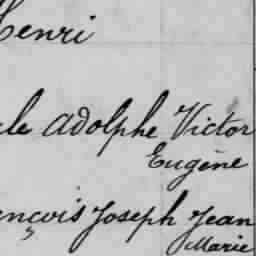 Henri
le Adolphe Victor
Eugène
ençois Joseph Jean
Marie